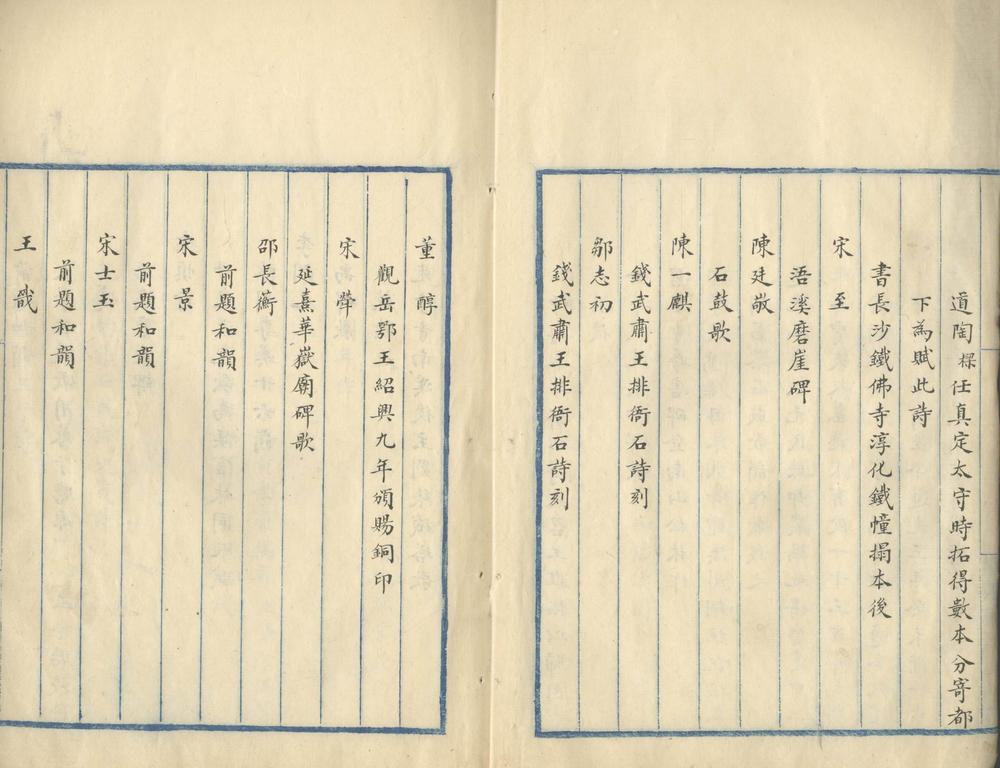 道陶樑任真定太守時拓得數本分寄都
下為賦此詩
書長沙鐵佛寺淳化鐵幢搨本後
宋 至
浯溪磨崖碑
陳廷敬
石鼓歌
陳一麒
錢武肅王排衙石詩刻
鄒志初
錢武肅王排衙石詩刻
董 醇
觀岳鄂王紹興九年頒賜銅印
宋 犖
延熹華嶽廟碑歌
邵長蘅
前題和韻
宋 景
前題和韻
宋士玉
前題和韻
王 戩